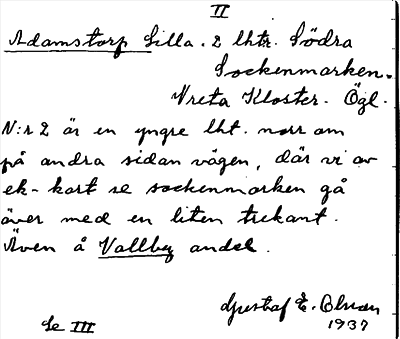 II
Adamstorp Lilla. 2 lhtr. Södra
Sockenmarken.
Vreta Kloster. Ögl.
N:r 2 är en yngre lht. norr om
på andra sidan vägen, där vi av
ek-kart se sockenmarken gå
över med en liten trekant.
Även å Vallby andel.
Gustaf E. Olsson
1937
Se III